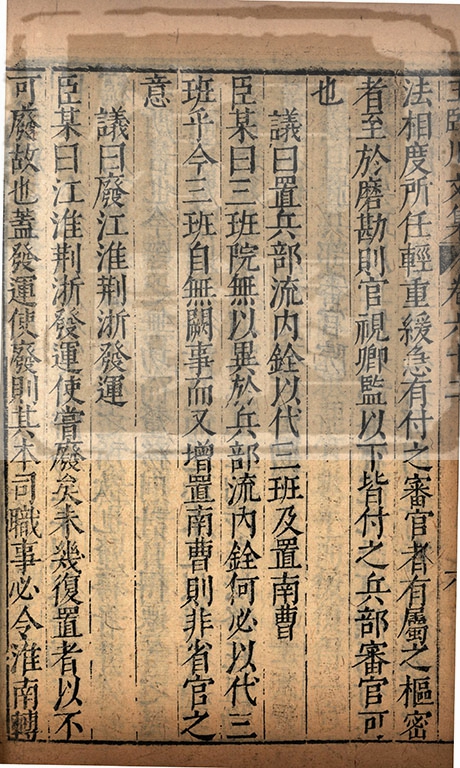 王臨川文集 卷六十二 六
法相度所任輕重緩急有付之審官者有屬之樞密
者至於磨勘則官視卿監以下皆付之兵部審官可
也
議曰置兵部流內銓以代三班及置南曹
臣某曰三班院無以異於兵部流內銓何必以代三
班乎今三班自無闕事而又增置南曹則非省官之
意
議曰廢江淮荆浙發運
臣某曰江淮荆浙發運使嘗廢矣未幾復置者以不
可廢故也蓋發運使廢則其本司職事必令淮南轉